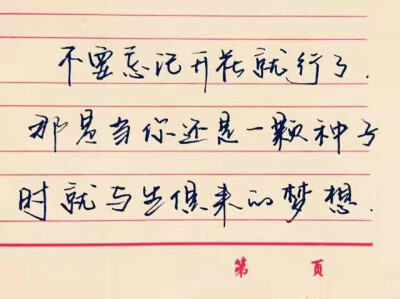 不要忘记开花就行了.
那是当你还是一颗种子
时就与生俱来的梦想.
第 页